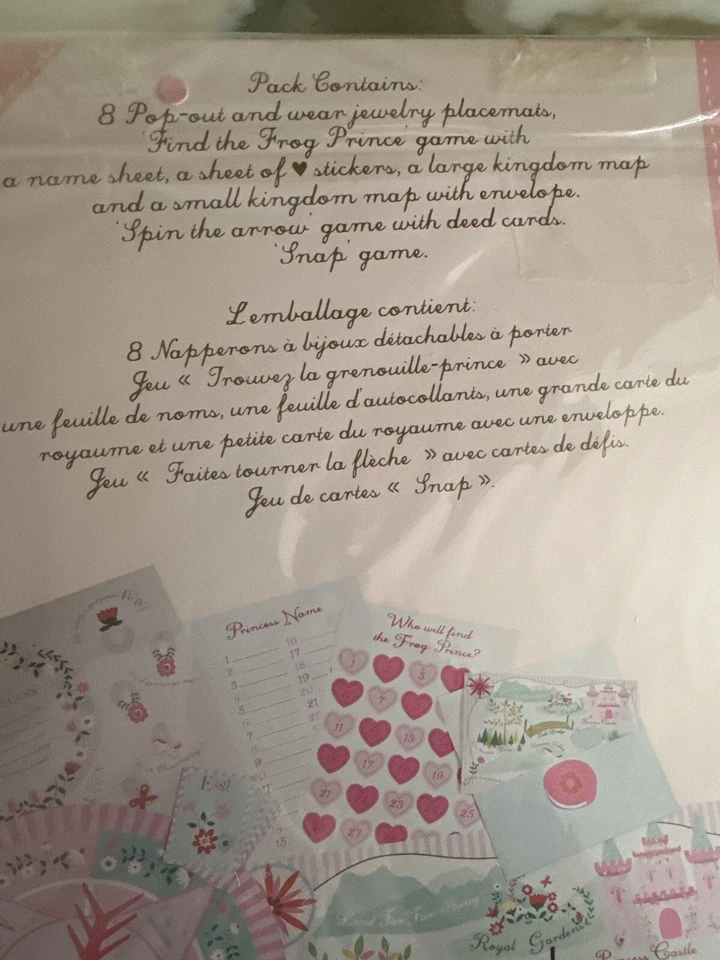 Pack Contains:
8 Pop-out and wear jewelry placemats,
'Find the Frog Prince' game with
a name sheet, a sheet of ♥ stickers, a large kingdom map
and a small kingdom map with envelope.
'Spin the arrow' game with deed cards.
'Snap' game.
L'emballage contient:
8 Napperons à bijoux détachables à porter
Jeu « Trouvez la grenouille-prince » avec
une feuille de noms, une feuille d'autocollants, une grande carte du
royaume et une petite carte du royaume avec une enveloppe.
Jeu « Faites tourner la flèche » avec cartes de défis.
Jeu de cartes « Snap ».
Princess Name
1
2
3
16
17
18
19
21
15
Who will find
the Frog Prince?
1 3
7
11 13
17 19
21 23 25
27
Royal Gardens
Princess Castle